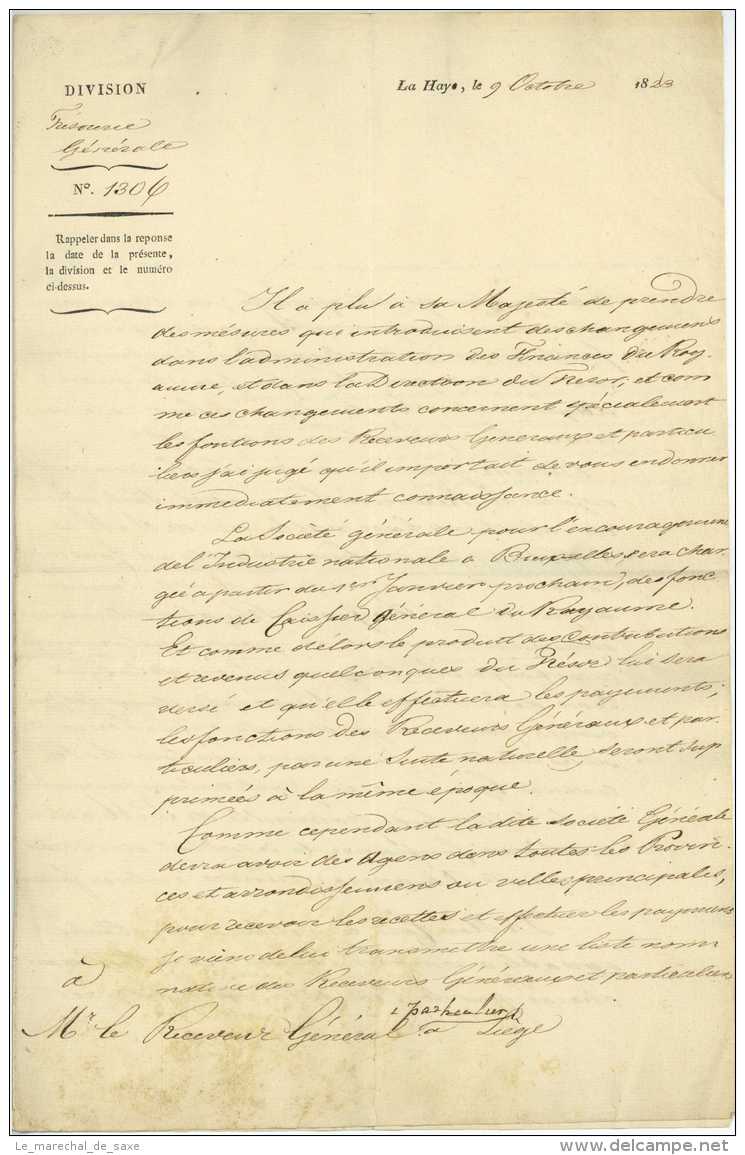 DIVISION
Trésorerie
Générale
N°. 1306
Rappeler dans la reponse
la date de la présente,
la division et le numéro
ci-dessus.
La Haye, le 9 Octobre 1823
Il a plu à sa Majesté de prendre
des mésures qui introduisent des changemens
dans l'administration des Finances du Roy-
aume, et dans la Direction du Trésor, et com
me ces changements concernent spécialement
les fontions des Receveurs Generaux et particu
liers j'ai jugé qu'il importait de vous en donner
immediatement connaissance.
La Société générale pour l'encouragement
de l'Industrie nationale a Bruxelles sera char-
gée a partir du 1er Janvier prochain, des fonc
tions de Caissier général du Royaume.
Et comme dèlors le produit des Contributions
et revenus quelconques du Trésor lui sera
versé et qu'elle effectuera les payements,
les fonctions des Receveurs Généraux et par-
ticuliers, par une suite naturelle, seront sup
primées à la même époque.
Comme cependant la dite société Générale
devra avoir des Agens dans toutes les Provin-
ces et arrondissemens ou villes principales,
pour recevoir les recettes et effectuer les payemens
je viens de lui transmettre une liste nomi
native des Receveurs Généraux et particuliers
à
Mr. le Receveur Général & particulier à Liège
Le_marechal_de_saxe
delcampe.net